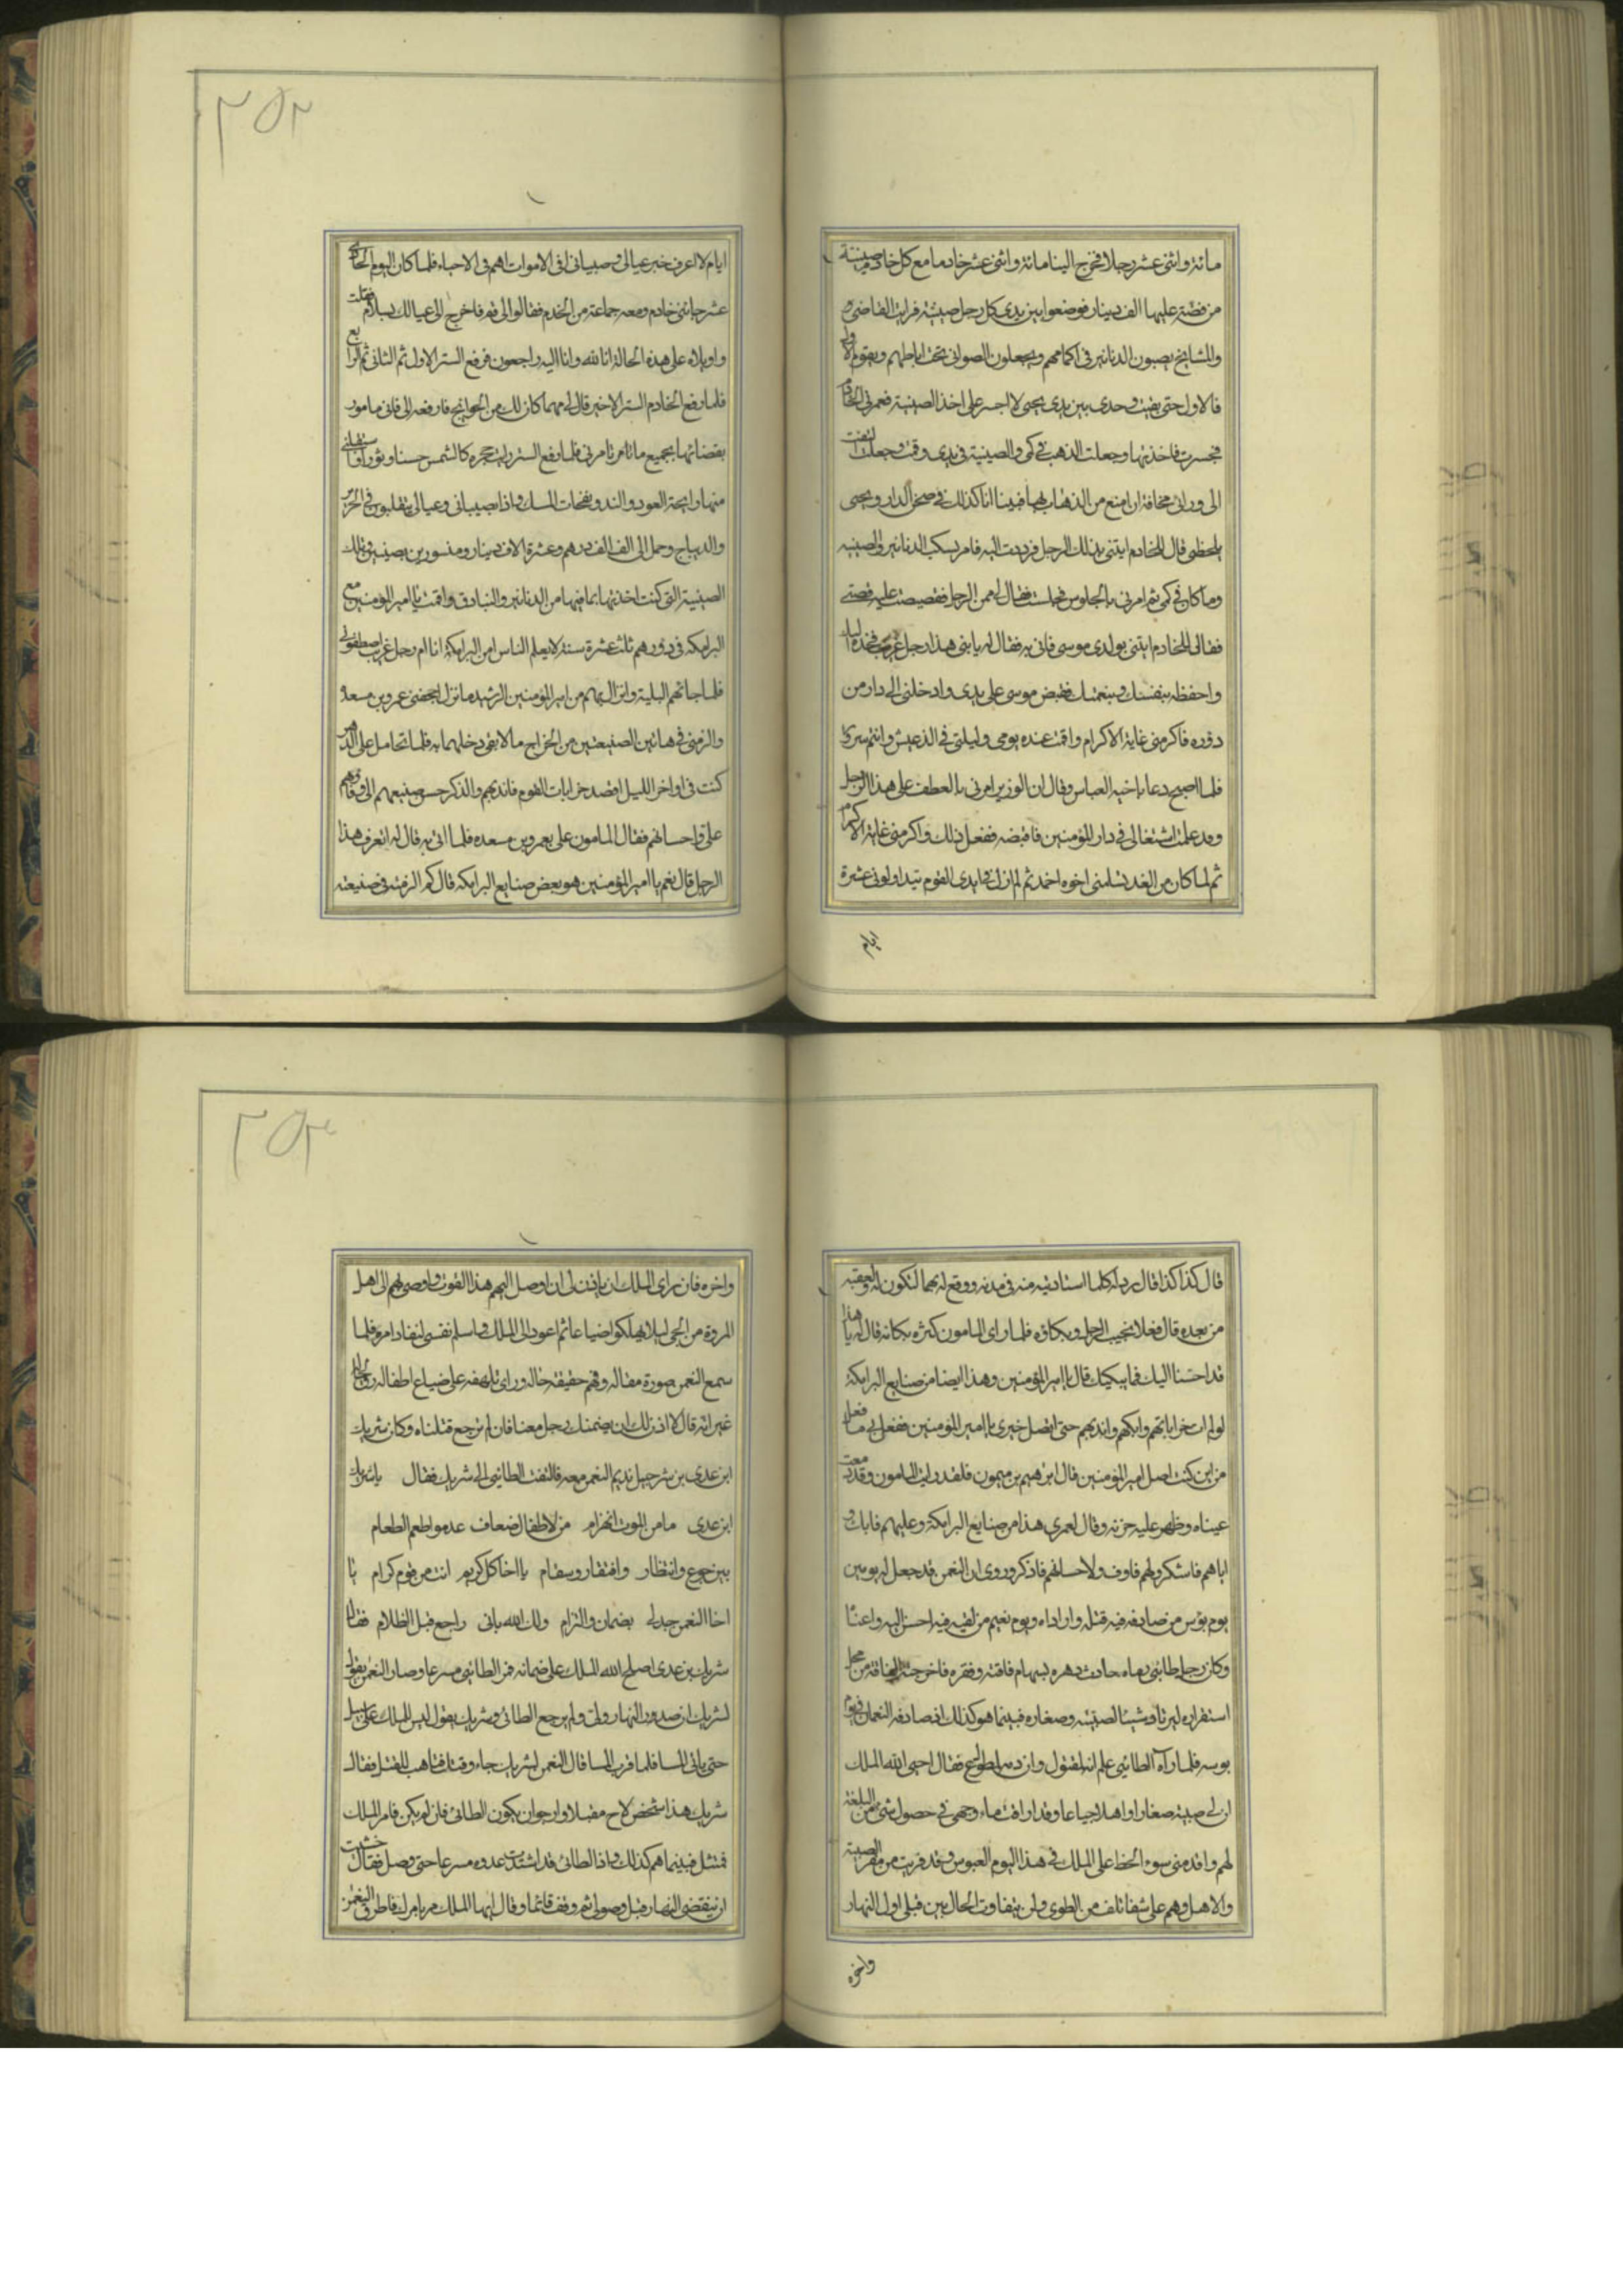 مائة واثنى عشر رجلا فخرج الينا مائة واثنى عشر خادما مع كل خادم صينية
من فضة عليها الف دينار فوضعوا بين يدى كل رجل صينية فرايت القاضى
والمشايخ يصبون الدنانير فى اكمامهم ويجعلون الصوانى تحت اباطهم ويقوم الاول
فالاول حتى بقيت وحدى بين يدى يحيى لا اجسر على اخذ الصينية فغمزنى الخادم
فجسرت فاخذتها وجعلت الذهب فى كمى والصينية فى يدى وقمت وجعلت التفت
الى ورائى مخافة ان امنع من الذهاب بها فبينا انا كذلك فى صحن الدار ويحيى
يلحظنى قال للخادم ايتنى بذلك الرجل فرددت اليه فامر بسكب الدنانير والصينيه
وما كان فى كمى ثم امرنى بالجلوس فجلست فقال لى ممن الرجل فقصيصت عليه قصتى
فقال للخادم ايتنى بولدى موسى فاتى به فقال له يا بنى هذا رجل غريب فخذه اليك
واحفظه بنفسك وبنعمتك فقبض موسى على يدى وادخلنى الى دار من
دوره فاكرمنى غاية الاكرام واقمت عنده يومى وليلتى فى الذ عيش واتم سرور
فلما اصبح دعا باخيه العباس وقال ان الوزير امرنى بالعطف على هذا الرجل
وقد علمت اشتغالى فى دار المؤمنين فاقبضه ففعل ذلك واكرمنى غاية الاكرام
ثم لما كان من الغد تسلمنى اخوه احمد ثم لم ازل فى ايدى القوم يتداولونى عشرة
ايام
٢٥٢
ايام لا اعرف خبر عيالى وصبيانى افى الاموات اهم فى الاحياء فلما كان اليوم الحادى
عشر جائنى خادم ومعه جماعة من الخدم فقالوا لى قم فاخرج الى عيالك بسلام فقلت
واويلاه على هذه الحالة انا لله وانا اليه راجعون فرفع الستر الاول ثم الثانى ثم الرابع
فلما رفع الخادم الستر الاخير قال لى مهما كان لك من الحوايج فارفعه الى فانى مامور
بقضائها بجميع ما تامر تامرنى فلما رفع الستر رايت حجره كالشمس حسنا ونورا واستقبلنى
منها رايحة العود والند ونفحات المسك واذا بصبيانى وعيالى يتقلبون فى الحرير
والديباج وحمل الى الف الف درهم وعشرة الاف دينار ومنسورين بصينيتين وتلك
الصينية التى كنت اخذتها بما فيها من الدنانير والبنادق واقمت يا امير المؤمنين مع
البرامكه فى دورهم ثلث عشرة سنة لا يعلم الناس امن البرامكة انا ام رجل غريب اصطنعونى
فلما جائتهم البلية وانزل بهم من امير المؤمنين الرشيد ما نزل اجحفنى عمرو بن مسعده
والزمنى فى هاتين الضيعتين من الخراج ما لا يفى دخلهما به فلما تحامل على الدهر
كنت فى اواخر الليل اقصد خرابات القوم فاندبهم والذكر حسن صنيعهم الى وفائهم
على واحسانهم فقال المامون على بعمرو بن مسعده فلما اتى به قال له اتعرف هذا
الرجل قال نعم يا امير المؤمنين هو بعض صنايع البرامكه قال كم الزمته فى ضيعته
قال كذا كذا قال رد له كلما استاديته منه فى مدته ووقع له بهما لتكون له ولعقبه
من بعده قال فعلا نحيب الرجل وبكاؤه فلما راى المامون كثرة بكائه قال له يا هذا
قد احسنا اليك فما يبكيك قال يا امير المؤمنين وهذا ايضا من صنايع البرامكة
لو لم ات خراباتهم وابكهم واندبهم حتى اتصل خبرى يا امير المؤمنين ففعل بى ما فعل
من اين كنت اصل امير المؤمنين قال ابرهيم بن ميمون فلقد رايت المامون وقد دمعت
عيناه وظهر عليه حزنه وقال لعمرى هذا من صنايع البرامكة وعليهم فابك و
اياهم فاشكر ولهم فاوف ولاحسانهم فاذكر وروى ان النعمن قد جعل له يومين
يوم بؤس من صادفه فيه قتله وارداه ويوم نعيم من لقيه فيه احسن اليه واغناه
وكان رجل طائى رماه حادث دهره بسهام فاقته وفقره فاخرجته الفاقة من محل
استقراره ليرتاد شيئا لصبيته وصغاره فبينما هو كذلك اذ صادفه النعمان فى يوم
بوسه فلما رآه الطائى علم انه مقتول وان دمه مطلول فقال احيى الله الملك
ان لى صبية صغارا واهلا جياعا وقد ارقت ماء وجهى فى حصول شئ من البلغة
لهم واقدمنى سوء الحظ على الملك فى هذا اليوم العبوس وقد قربت من مقر الصبية
والاهل وهم على شفا تلف من الطوى ولن يتفاوت الحال بين قتلى اول النهار
واخره
٢٥٣
واخره فان راى الملك ان ياذن لى ان اوصل اليهم هذا القوت واوصى بهم الى اهل
المروة من الحى ليلا يهلكوا ضياعا ثم اعود الى الملك واسلم نفسى لنفاد امره فلما
سمع النعمن صورة مقاله وفهم حقيقة حاله وراى تلهفه على ضياع اطفاله رق له
غير انه قال لا اذن لك ان يضمنك رجل معنا فان لم ترجع قتلناه وكان شريك
ابن عدى بن شرحبيل نديم النعمن معه فالتفت الطائى الى شريك فقال يا شريك
ابن عدى ما من الموت انهزام من لاطفال ضعاف عدموا طعم الطعام
بين جوع وانتظار وافتقار وسقام يا اخا كل كريم انت من قوم كرام يا
اخا النعمن جد لى بضمان والتزام ولك الله بانى راجع قبل الظلام فقال
شريك بن عدى اصلح الله الملك على ضمانه فمر الطائى مسرعا وصار النعمن يقول
لشريك ان صدر النهار ولى ولم يرجع الطائى وشريك يقول ليس للملك على سبيل
حتى ياتى المسا فلما قرب المسا قال النعمن لشريك جاء وقتك فتاهب للقتل فقال
شريك هذا شخص لاح مقبلا وارجوان يكون الطائى فان لم يكن فامر الملك
فمتثل فبينما هم كذلك واذا الطائى قد اشتدت عدوه مسرعا حتى وصل فقال خشيت
ان ينقضى النهار قبل وصولى ثم وقف قائما وقال ايها الملك مر بامرك فاطرق النعمن